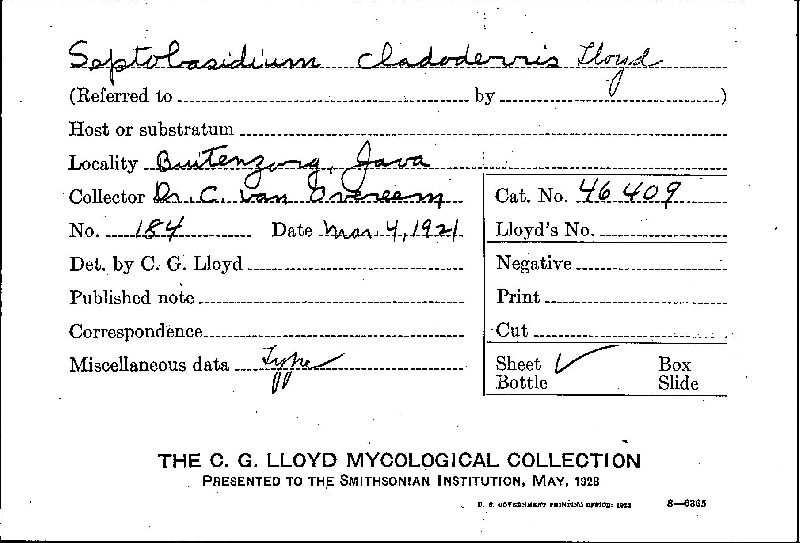 Septobasidium cladoderris Lloyd
(Referred to by )
Host or substratum
Locality Buitenzorg, Java
Collector Dr. C. van Overeem
Cat. No. 46409
No. 184 Date Mar. 4, 1921
Lloyd's No.
Det. by C. G. Lloyd
Negative
Published note
Print
Correspondence
Cut
Miscellaneous data Type
Sheet ✓ Box
Bottle Slide
THE C. G. LLOYD MYCOLOGICAL COLLECTION
PRESENTED TO THE SMITHSONIAN INSTITUTION, MAY, 1928
U. S. GOVERNMENT PRINTING OFFICE: 1928 8—6365